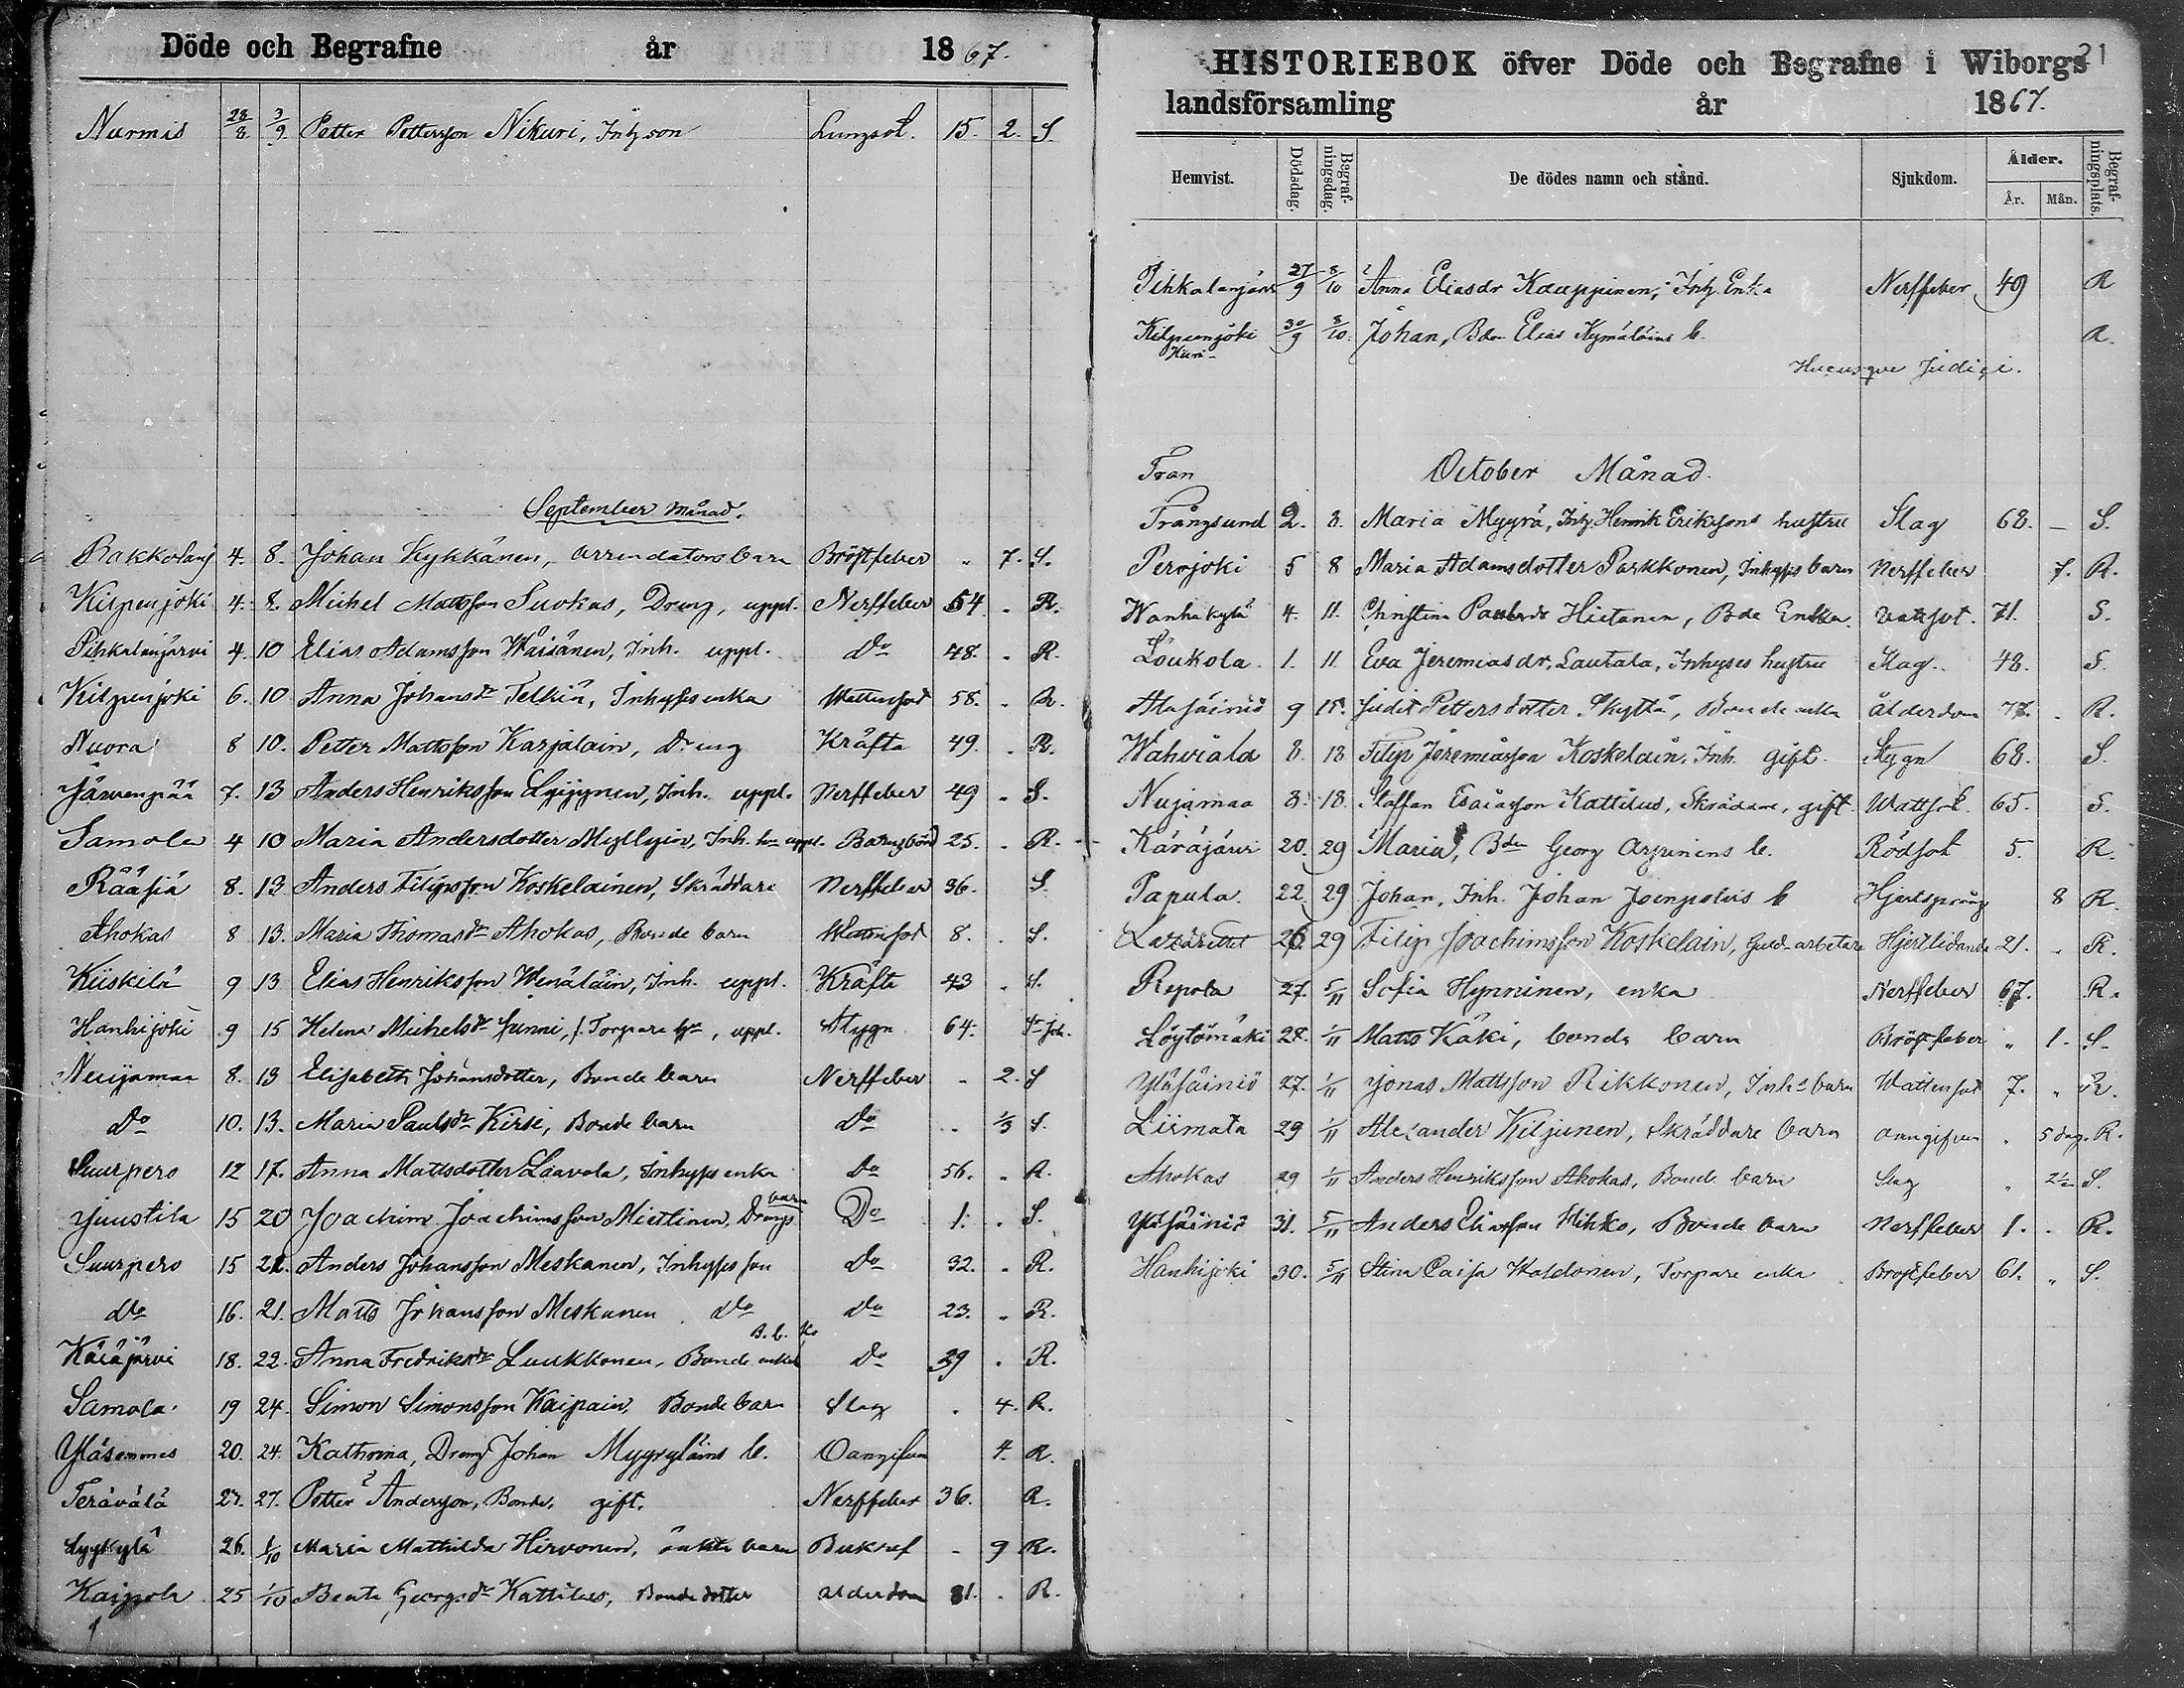 Döde och Begrafne år 1867.
Nurmis 28/8 3/9. Petter Pettersson Nikuri, Inh. son Lungsot. 15. 2. S.
September Månad.
4. 8. Johan Kykkänen, arrendators barn Bröstfeber " 7. S.
Kilpenjoki 4. 8. Michel Mattsson Suokas, Dreng, uppl. Nerffeber 54 " R.
Pihkalanjärvi 4. 10 Elias Adamsson Wäisänen, Inh. uppl. Do 48. " R.
Kilpenjoki 6. 10 Anna Johansdr Telkiä, Inhyses enka Wattensot 58. " R.
Nuora 8 10. Petter Mattsson Karjalain, Dreng Kräfta 49. " R.
Järvenpää 7. 13 Anders Henriksson Lyijynen, Inh. uppl. Nerffeber 49 " S.
Samola 4 10 Maria Andersdotter Myllyin, Inh. hu uppl. Barnsbörd 25. " R.
Rääsiä 8. 13 Anders Filipsson Koskelainen, Skräddare Nerffeber 36. S.
Ahokas 8 13. Maria Thomasdr Ahokas, Bonde barn Wattensot 8. " S.
Kiiskilä 9 13 Elias Henriksson Wenäläin, Inh. uppl. Kräfta 43 " S.
Hanhijoki 9 15 Helena Michelsdr Junni, f. Torpare hu, uppl. Stygn 64. St Joh.
Nuijamaa 8. 13 Elisabeth Johansdotter, Bonde barn Nerffeber " 2. S
Do 10. 13. Maria Paulsdr Kirsi, Bonde barn Do " 1/3 S.
Suurpero 12 17. Anna Mattsdotter Laavola, Inhyses enka Do 56. " R.
Juustila 15 20 Joachim Joachimsson Miettinen, Drengs barn Do 1. " S.
Suurpero 15 21. Anders Johansson Meskanen, Inhyses son Do 32. " R.
Do 16. 21. Matts Johansson Meskanen Do Do 23. " R.
Käräjärvi 18. 22. Anna Fredriksdr Luukkonen, Bonde enka Do 39 " R.
Samola 19 24. Simon Simonsson Kaipain, Bonde barn Slag " 4. R.
Yläsommes 20. 24. Kathrina, Dreng Johan Myyryläins b. Oangifven 4. R.
Terävälä 27. 27. Petter Andersson, Bonde, gift. Nerffeber 36. R.
Lyykylä 26. 1/10 Maria Mathilda Hirvonen, barn Bukref " 9 R.
Kaipola 25 1/10 Beata Georgsdr Kattilus, Bonde dotter Alderdom 81. " R.
HISTORIEBOK öfver Döde och Begrafne i Wiborgs 21
landsförsamling år 1867.
Hemvist. Dödsdag. Begrafningsdag. De dödes namn och stånd. Sjukdom. Ålder. År. Mån. Begrafningsplats.
Pihkalanjärvi 27/9 8/10 Anna Eliasdr Kauppinen, Inh. Enka Nerffeber 49 R
Kilpeenjoki 30/9 8/10. Johan, Bdn Elias Kymäläins b. R.
Hucusque Judici.
Tran
October Månad.
Trångsund 2. 8. Maria Myyrä, Inh. Henrik Erikssons hustru Slag 68. — S.
Perojoki 5 8 Maria Adamsdotter Parkkonen, Inhyses barn Nerffeber 7. R.
Wanhakylä 4. 11. Christina Paulsdr Hietanen, Bde Enka 71. S.
Loukola. 1. 11 Eva Jeremiasdr. Lautala, Inhyses hustru Slag. 48. S
Alasäiniö 9 15. Judit Pettersdotter Skyttä, Bonde enka Ålderdom 77. " R.
Wahviala 8. 18 Filip Jeremiasson Koskelain, Inh. gift. Stygn 68. S.
Nujamaa 8. 18. Staffan Esaiasson Kattilus, Skrädare, gift. Wattsot. 65. S.
Käräjärvi 20. 29 Maria, Bdn Georg Arpinens b. Rödsot 5. R.
Papula. 22. 29 Johan, Inh. Johan Joenpolvis b Hjertsprång 8 R.
Lazarettet 26 29 Filip Joachimsson Koskelain, Guld-arbetare Hjertlidande 21. " R.
Repola 27. 5/11 Sofia Hynninen, enka Nerffeber 67. R.
Löytömäki 28. 1/11 Matts Käki, bonde barn Bröstfeber " 1. S.
Yläsäiniö 27. 1/11 Jonas Mattsson Rikkonen, Inhs barn Wattensot 7. " R.
Liimata 29 1/11 Alexander Kiljunen, Skräddare barn oangifven " 5 dag. R.
Ahokas 29 1/11 Anders Henriksson Ahokas, Bonde barn Slag " 2½ S.
Yläsäiniö 31. 5/11 Anders Eliasson Hihko, Bonde barn Nerffeber 1. " R.
Hanhijoki 30. 5/11 Stina Caisa Waldonen, Torpare enka Bröstfeber 61. " S.